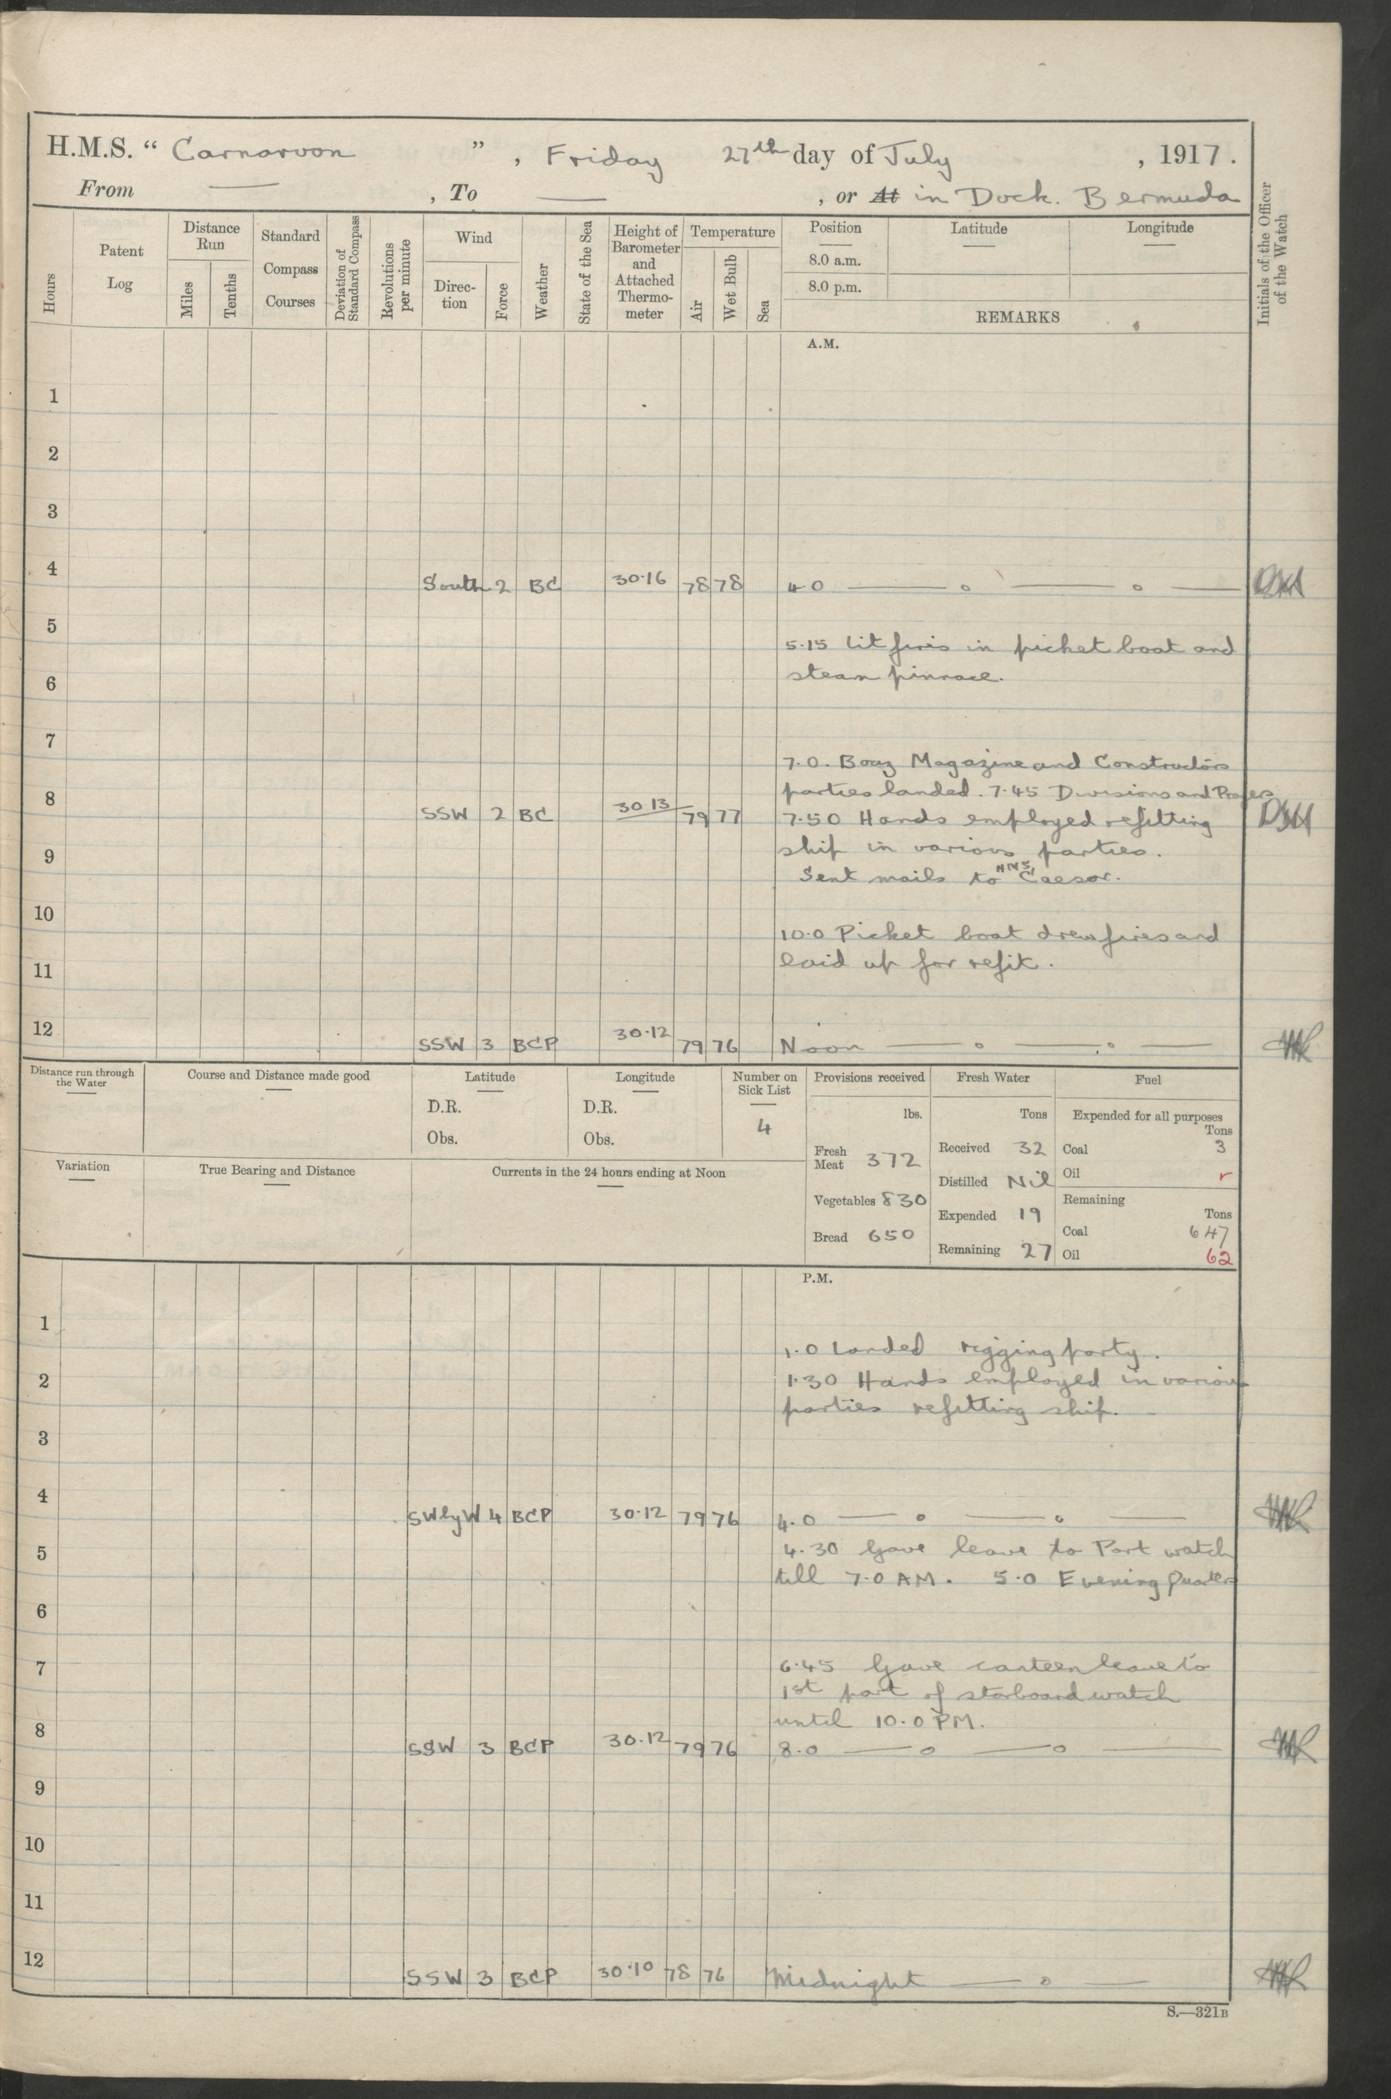 H.M.S. “ Carnarvon ” , Friday 27th day of July , 1917.
From — , To — , or At in Dock. Bermuda
Hours
Patent Log
Distance Run
Miles
Tenths
Standard Compass Courses
Deviation of Standard Compass
Revolutions per minute
Wind
Direction
Force
Weather
State of the Sea
Height of Barometer and Attached Thermometer
Temperature
Air
Wet Bulb
Sea
Position
8.0 a.m.
8.0 p.m.
Latitude
Longitude
REMARKS
Initials of the Officer of the Watch
A.M.
1
2
3
4 South 2 BC 30.16 78 78 4.0 — o — o —
5
5.15 Lit fires in picket boat and
6 steam pinnace.
7
7.0. Boaz Magazine and Constructors
8 parties landed. 7.45 Divisions and Prayers
SSW 2 BC 30 13 79 77 7.50 Hands employed refitting
9 ship in various parties.
Sent mails to HMS Caesar.
10
10.0 Picket boat drew fires and
11 laid up for refit.
12 SSW 3 BCP 30.12 79 76 Noon — o — o —
Distance run through the Water
Course and Distance made good
Latitude
D.R.
Obs.
Longitude
D.R.
Obs.
Number on Sick List
4
Variation
True Bearing and Distance
Currents in the 24 hours ending at Noon
Provisions received
lbs.
Fresh Meat 372
Vegetables 830
Bread 650
Fresh Water
Tons
Received 32
Distilled Nil
Expended 19
Remaining 27
Fuel
Expended for all purposes
Tons
Coal 3
Oil
Remaining
Tons
Coal 647
Oil 62
P.M.
1
1.0 Landed rigging party.
2 1.30 Hands employed in various
parties refitting ship.
3
4 SWlyW 4 BCP 30.12 79 76 4.0 — o — o —
5 4.30 Gave leave to Port watch
till 7.0 AM. 5.0 Evening Quarters
6
7 6.45 Gave canteen leave to
1st part of starboard watch
8 until 10.0 PM.
SSW 3 BCP 30.12 79 76 8.0 — o — o —
9
10
11
12 SSW 3 BCP 30.10 78 76 Midnight — o —
S.—321B